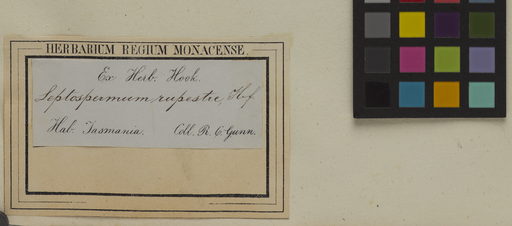 HERBARIUM REGIUM MONACENSE.
Ex Herb. Hook.
Leptospermum rupestre, H.f.
Hab. Tasmania. Coll. R. C. Gunn.